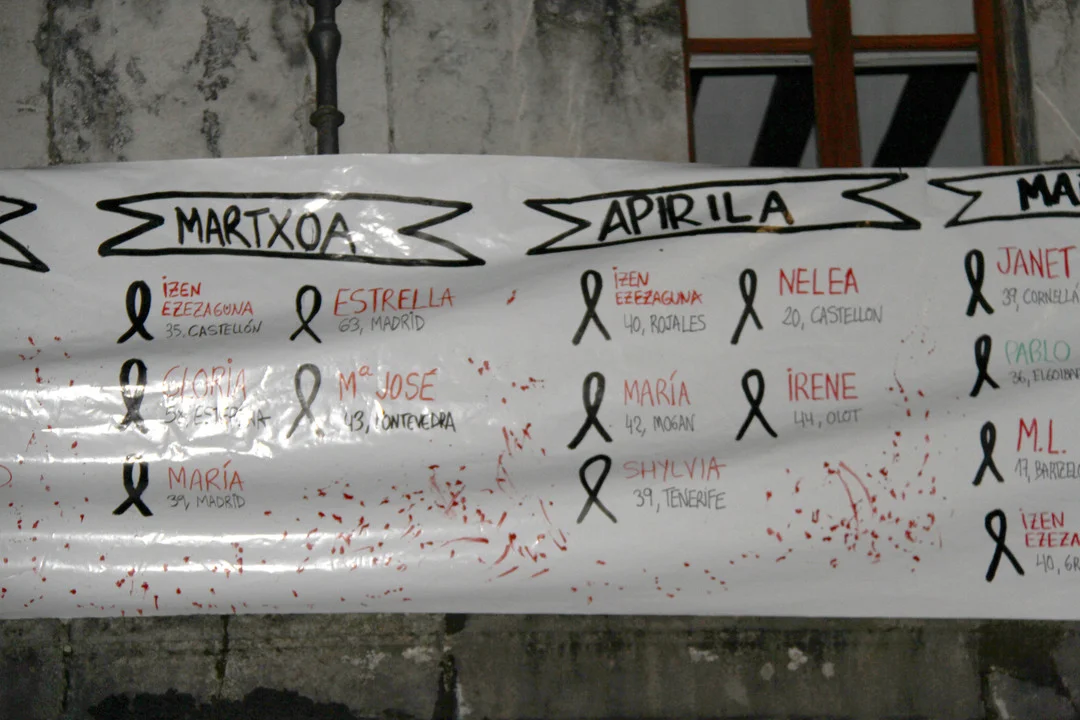 MARTXOA
IZEN
EZEZAGUNA
35, CASTELLÓN
ESTRELLA
63, MADRID
GLORIA
M.ª JOSÉ
43, PONTEVEDRA
MARÍA
39, MADRID
APIRILA
IZEN
EZEZAGUNA
40, ROJALES
NELEA
20, CASTELLON
MARÍA
42, MOGAN
IRENE
44, OLOT
SHYLVIA
39, TENERIFE
MA
JANET
39, CORNELLÁ
PABLO
36, ELGOIBA
M.L.
17, BARTZEL
IZEN
EZEZA
40, GR